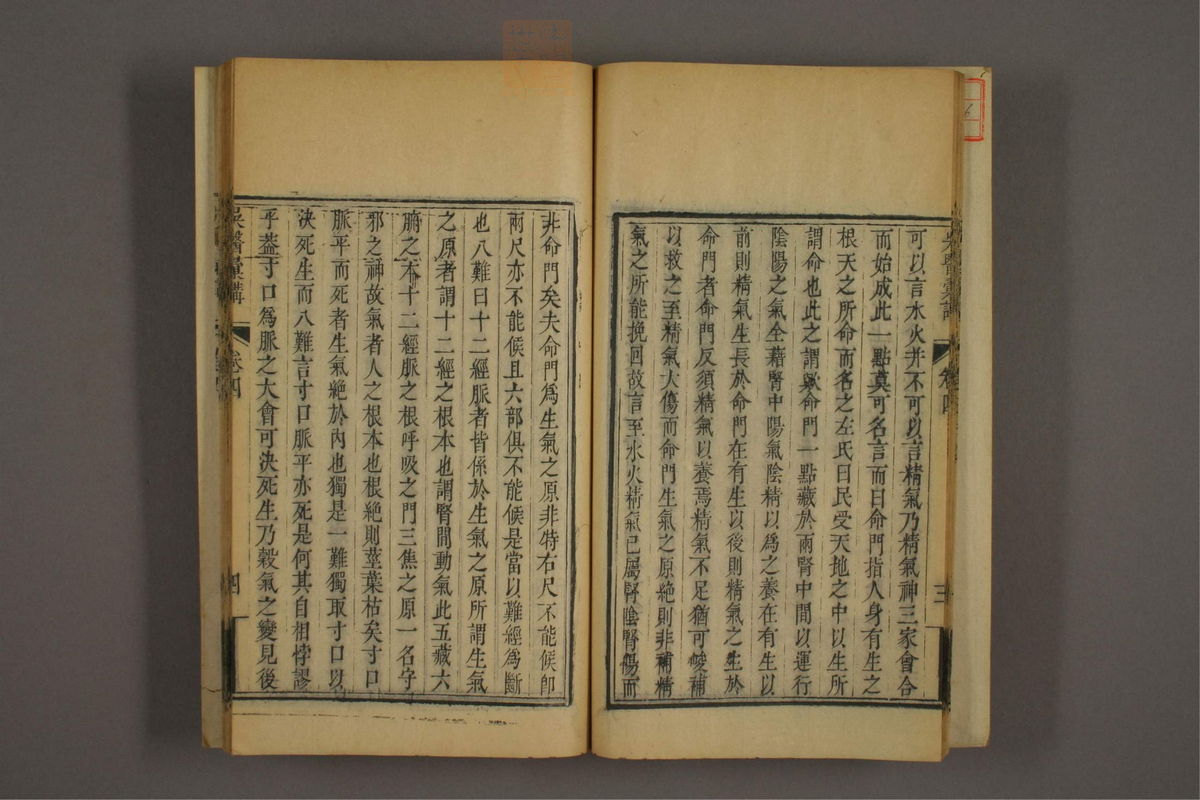 可以言水火并不可以言精氣乃精氣神三家會合
而始成此一點莫可名言而曰命門指人身有生之
根天之所命而名之左氏曰民受天地之中以生所
謂命也此之謂歟命門一點藏於兩腎中間以運行
陰陽之氣全藉腎中陽氣陰精以為之養在有生以
前則精氣生長於命門在有生以後則精氣之生於
命門者命門反須精氣以養焉精氣不足猶可峻補
以救之至精氣大傷而命門生氣之原絶則非補精
氣之所能挽回故言至水火精氣已屬腎陰腎傷而
吳醫彙講 卷四 三
非命門矣夫命門爲生氣之原非特右尺不能候卽
兩尺亦不能候且六部俱不能候是當以難經爲斷
也八難曰十二經脈者皆係於生氣之原所謂生氣
之原者謂十二經之根本也謂腎間動氣此五藏六
腑之本十二經脈之根呼吸之門三焦之原一名守
邪之神故氣者人之根本也根絶則莖葉枯矣寸口
脈平而死者生氣絶於內也獨是一難獨取寸口以
決死生而八難言寸口脈平亦死是何其自相悖謬
乎蓋寸口爲脈之大會可決死生乃穀氣之變見後
吳醫彙講 卷四 四